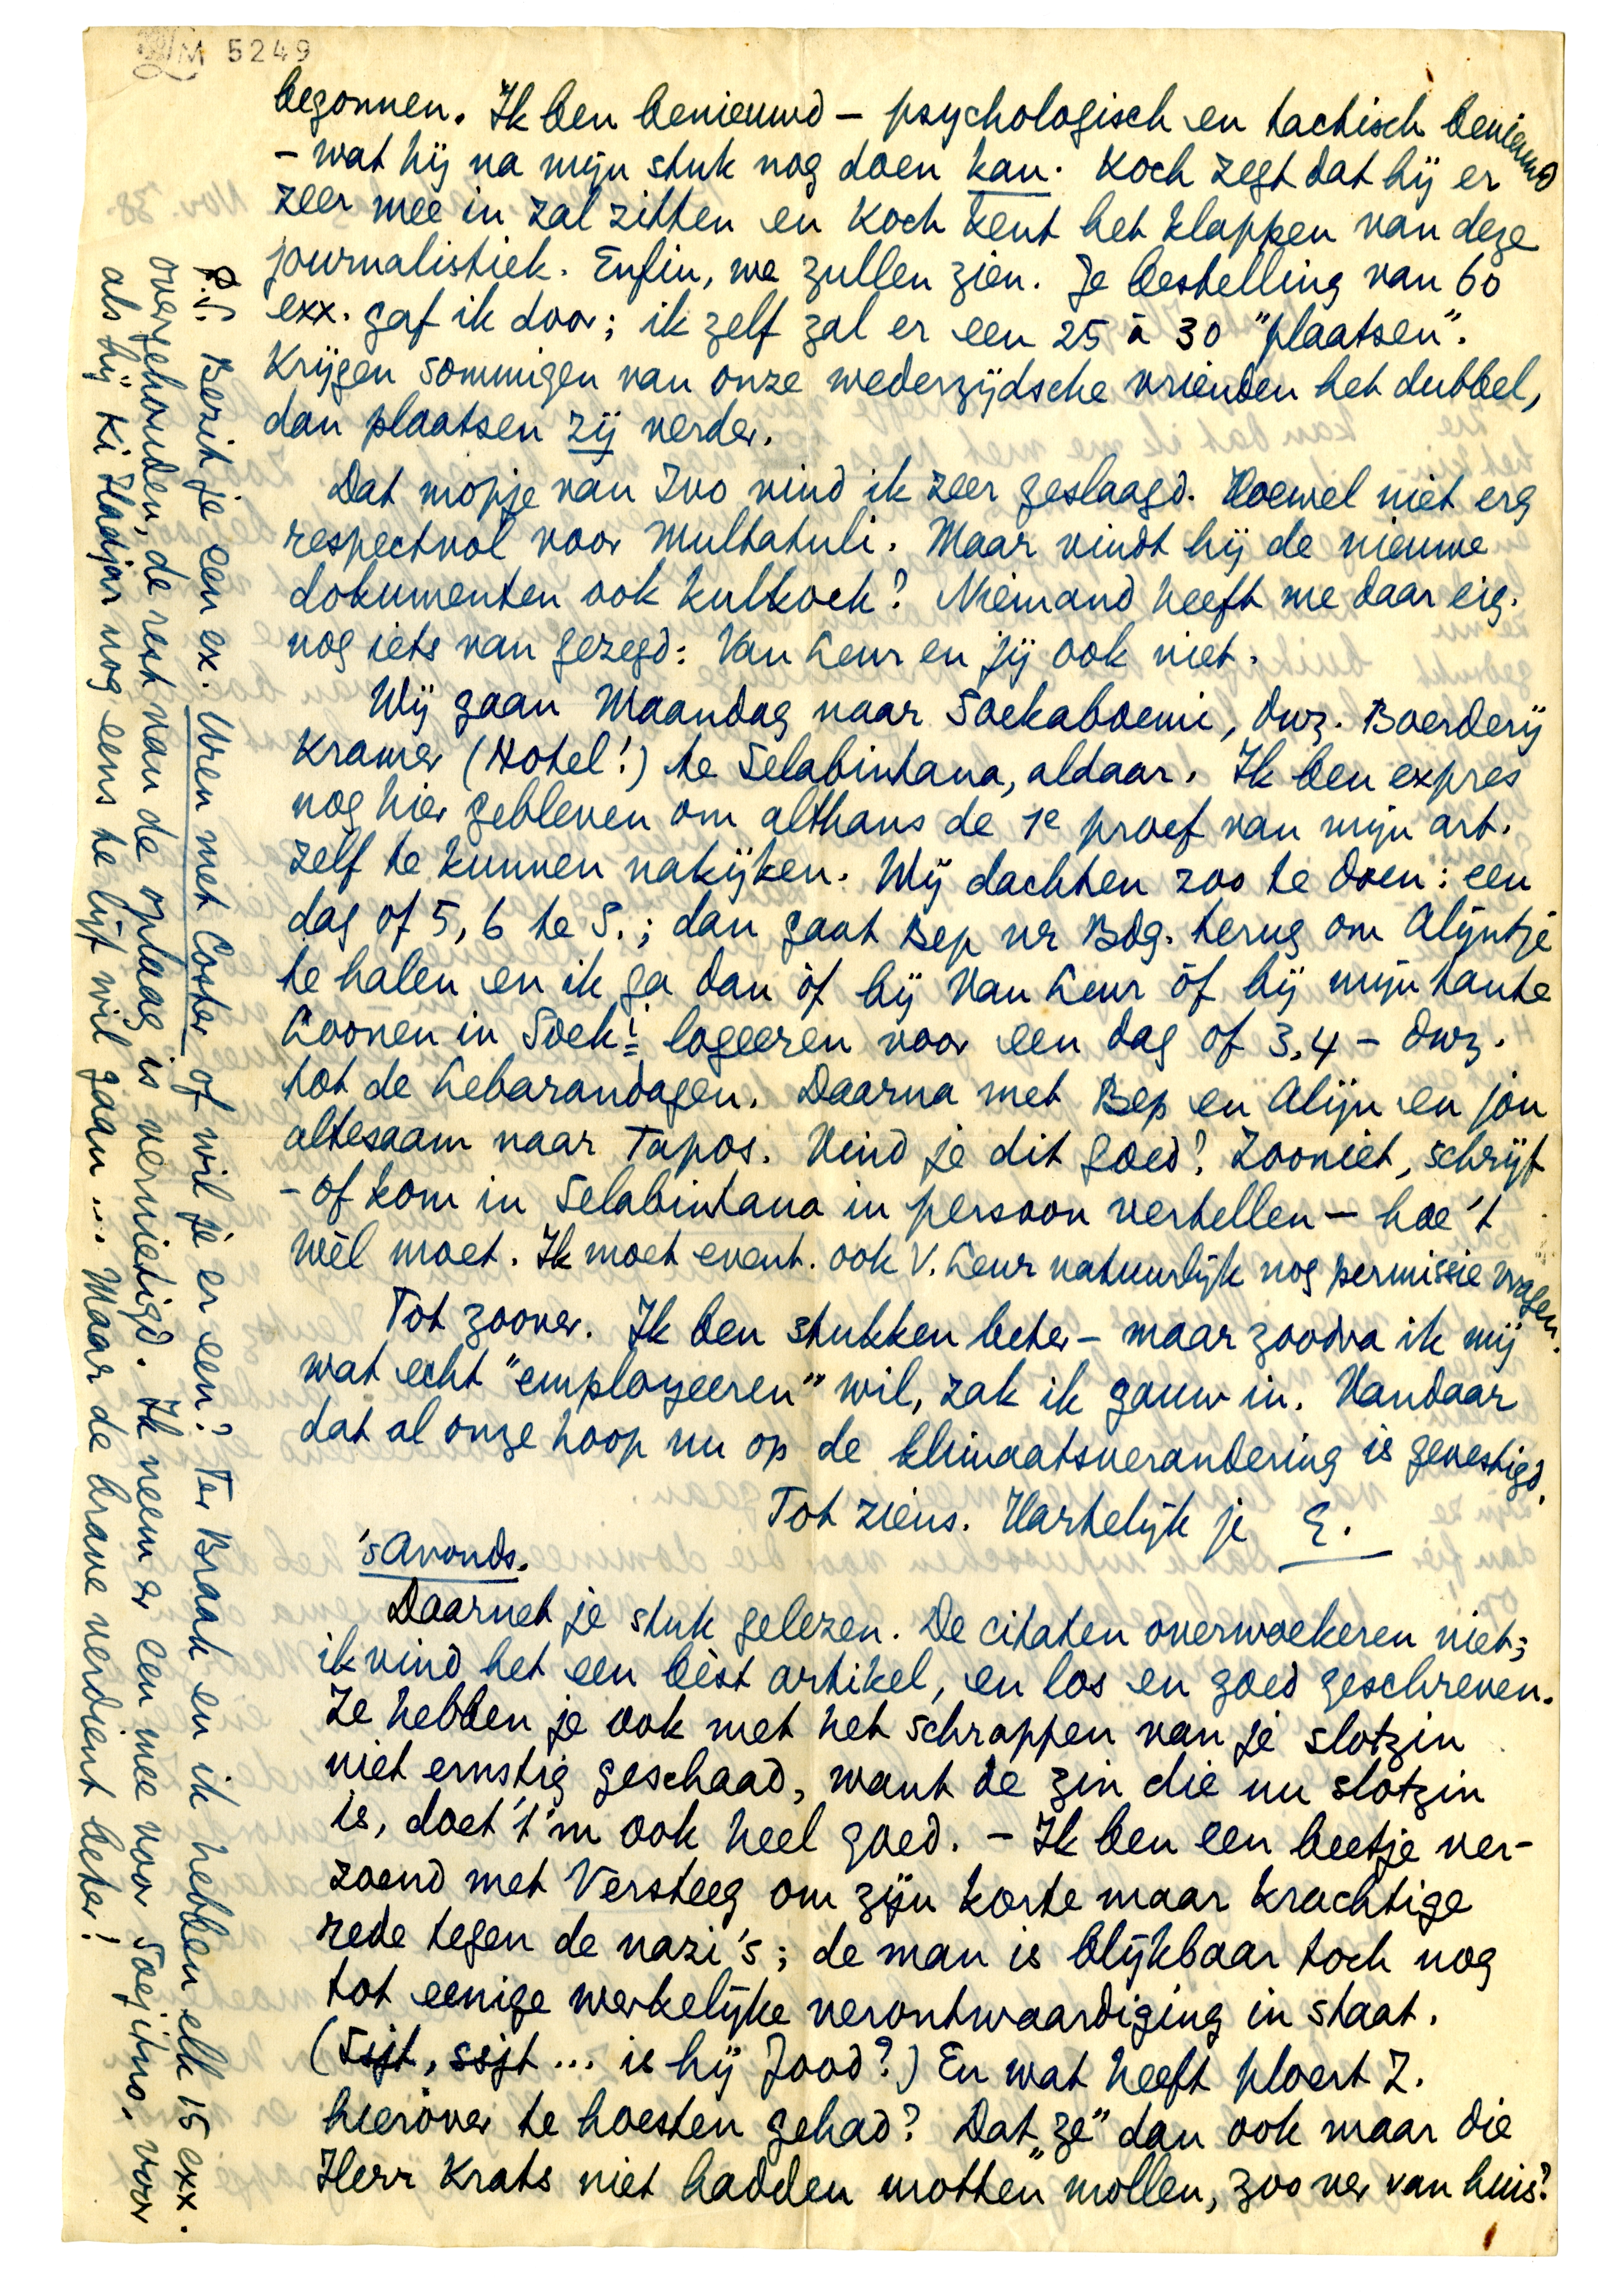 LM 5249
begonnen. Ik ben benieuwd – psychologisch en tactisch benieuwd
– wat hij na mijn stuk nog doen kan. Koch zegt dat hij er
zeer mee in zal zitten en Koch kent het klappen van deze
journalistiek. Enfin, we zullen zien. Je bestelling van 60
exx. gaf ik door; ik zelf zal er een 25 à 30 "plaatsen".
Krijgen sommigen van onze wederzijdsche vrienden het dubbel,
dan plaatsen zij verder.
Dat mopje van Ivo vind ik zeer geslaagd. Hoewel niet erg
respectvol voor Multatuli. Maar vindt hij de nieuwe
dokumenten ook kulkoek? Niemand heeft me daar eig.
nog iets van gezegd: Van Leur en jij ook niet.
Wij gaan Maandag naar Soekaboemi, dwz. Boerderij
Kramer (Hotel!) te Selabintana, aldaar. Ik ben expres
nog hier gebleven om althans de 1e proef van mijn art.
zelf te kunnen nakijken. Wij dachten zoo te doen: een
dag of 5, 6 te S.; dan gaat Bep nr Bdg. terug om Alijntje
te halen en ik ga dan òf bij Van Leur òf bij mijn tante
Loonen in Soek: logeeren voor een dag of 3, 4 – dwz.
tot de Lebarandagen. Daarna met Bep en Alijn en jou
altesaam naar Tapos. Vind je dit goed? Zooniet, schrijf
– of kom in Selabintana in persoon vertellen – hoe 't
wèl moet. Ik moet event. ook V. Leur natuurlijk nog permissie vragen.
Tot zoover. Ik ben stukken beter – maar zoodra ik mij
wat echt "employeeren" wil, zak ik gauw in. Vandaar
dat al onze hoop nu op de klimaatsverandering is gevestigd.
Tot ziens. Hartelijk je E.
's Avonds.
Daarnet je stuk gelezen. De citaten overwoekeren niet;
ik vind het een bèst artikel, en los en goed geschreven.
Ze hebben je ook met het schrappen van je slotzin
niet ernstig geschaad, want de zin die nu slotzin
is, doet 't 'm ook heel goed. – Ik ben een beetje ver-
zoend met Versteeg om zijn korte maar krachtige
rede tegen de nazi's; de man is blijkbaar toch nog
tot eenige werkelijke verontwaardiging in staat.
(Sjt, sjt... is hij Jood?) En wat heeft ploert Z.
hierover te hoesten gehad? Dat "ze" dan ook maar die
Herr Krats niet hadden motten mollen, zoo ver van huis?
P.S. Bezit je een ex. Uren met Coster of wil je er een? Ter Braak en ik hebben elk 15 exx.
overgehouden, de rest van de oplaag is vernietigd. Ik neem er een mee voor Soejitno, voor
als hij Ki Hadjar nog eens te lijf wil gaan... Maar de brave verdient beter!